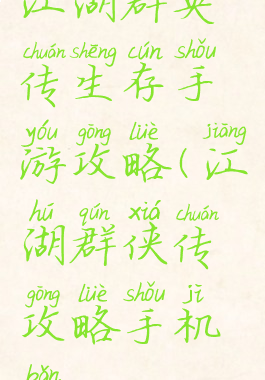 江湖群英
chuán shēng cún shǒu
传生存手
yóu gōng lüè jiāng
游攻略(江
hú qún xiá chuán
湖群侠传
gōng lüè shǒu jī
攻略手机
bǎn